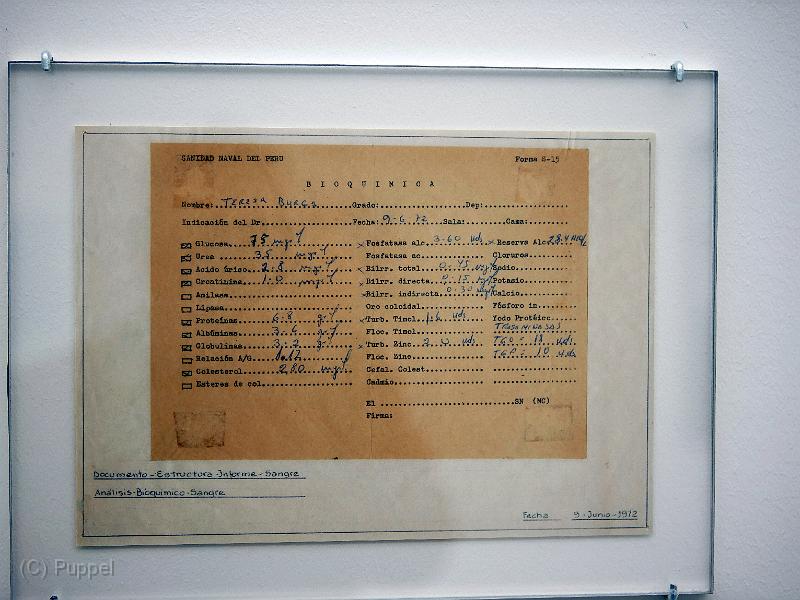 SANIDAD NAVAL DEL PERU Forma S-15
BIOQUIMICA
Nombre: TERESA BURGA Grado: Dep:
Indicación del Dr. Fecha: 9-6-72 Sala: Cama:
Glucosa 75 mg.% Fosfatasa alc. 3-60 uds. Reserva Alc.
Urea 35 mg.% Fosfatasa ac. Cloruros
Acido úrico 2-8 mg.% Bilrr. total 0.45 mg% Sodio
Creatinina 1-0 mg.% Bilrr. directa 0.15 Potasio
Anilasa Bilrr. indirecta 0.30 Calcio
Lipasa Oro coloidal Fósforo in.
Proteínas 6-8 g.% Turb. Timol 1.6 uds. Yodo Protéic.
Albúminas 3-6 g.% Floc. Timol TRANSAMINASAS
Globulinas 3-2 g. Turb. Zinc 2.0 uds. TGO = uds.
Relación A/G 1.12 Floc. Zinc TGP = 10 uds
Colesterol 280 mg.% Cefal. Colest.
Esteres de col. Cadmio
El SN (MC)
Firma:
Documento-Estructura-Informe-Sangre
Análisis-Bioquimico-Sangre
Fecha 9-Junio-1972
(C) Puppel